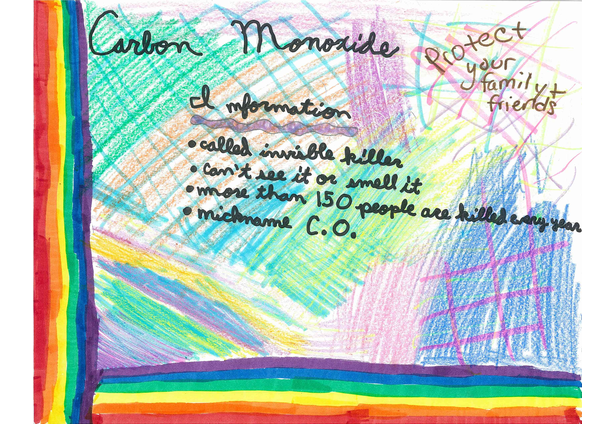 Carbon Monoxide
Protect
your
family +
friends
Information
• called invisible killer
• can't see it or smell it
• more than 150 people are killed every year
• nickname C.O.